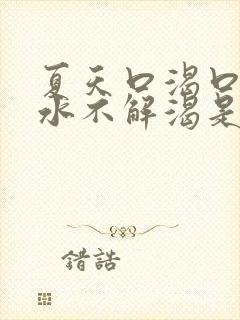 夏天口渴口
水不解渴是
錯誥